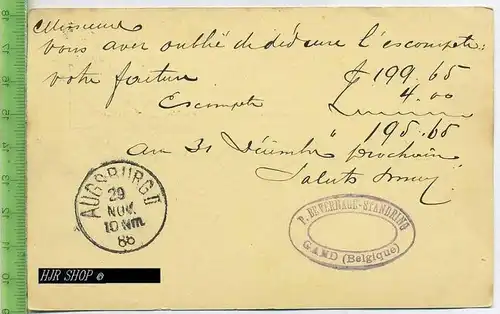 Monsieur
Vous avez oublié de déduire l'escompte:
votre facture
₣ 199.65
Escompte
4.00
195.65
au 31 Décembre prochain
Saluts
AUGSBURG II
29
NOV.
10 Nm.
86
P. DE VERHAGE-STANDRING
GAND (Belgique)
HJR SHOP ©